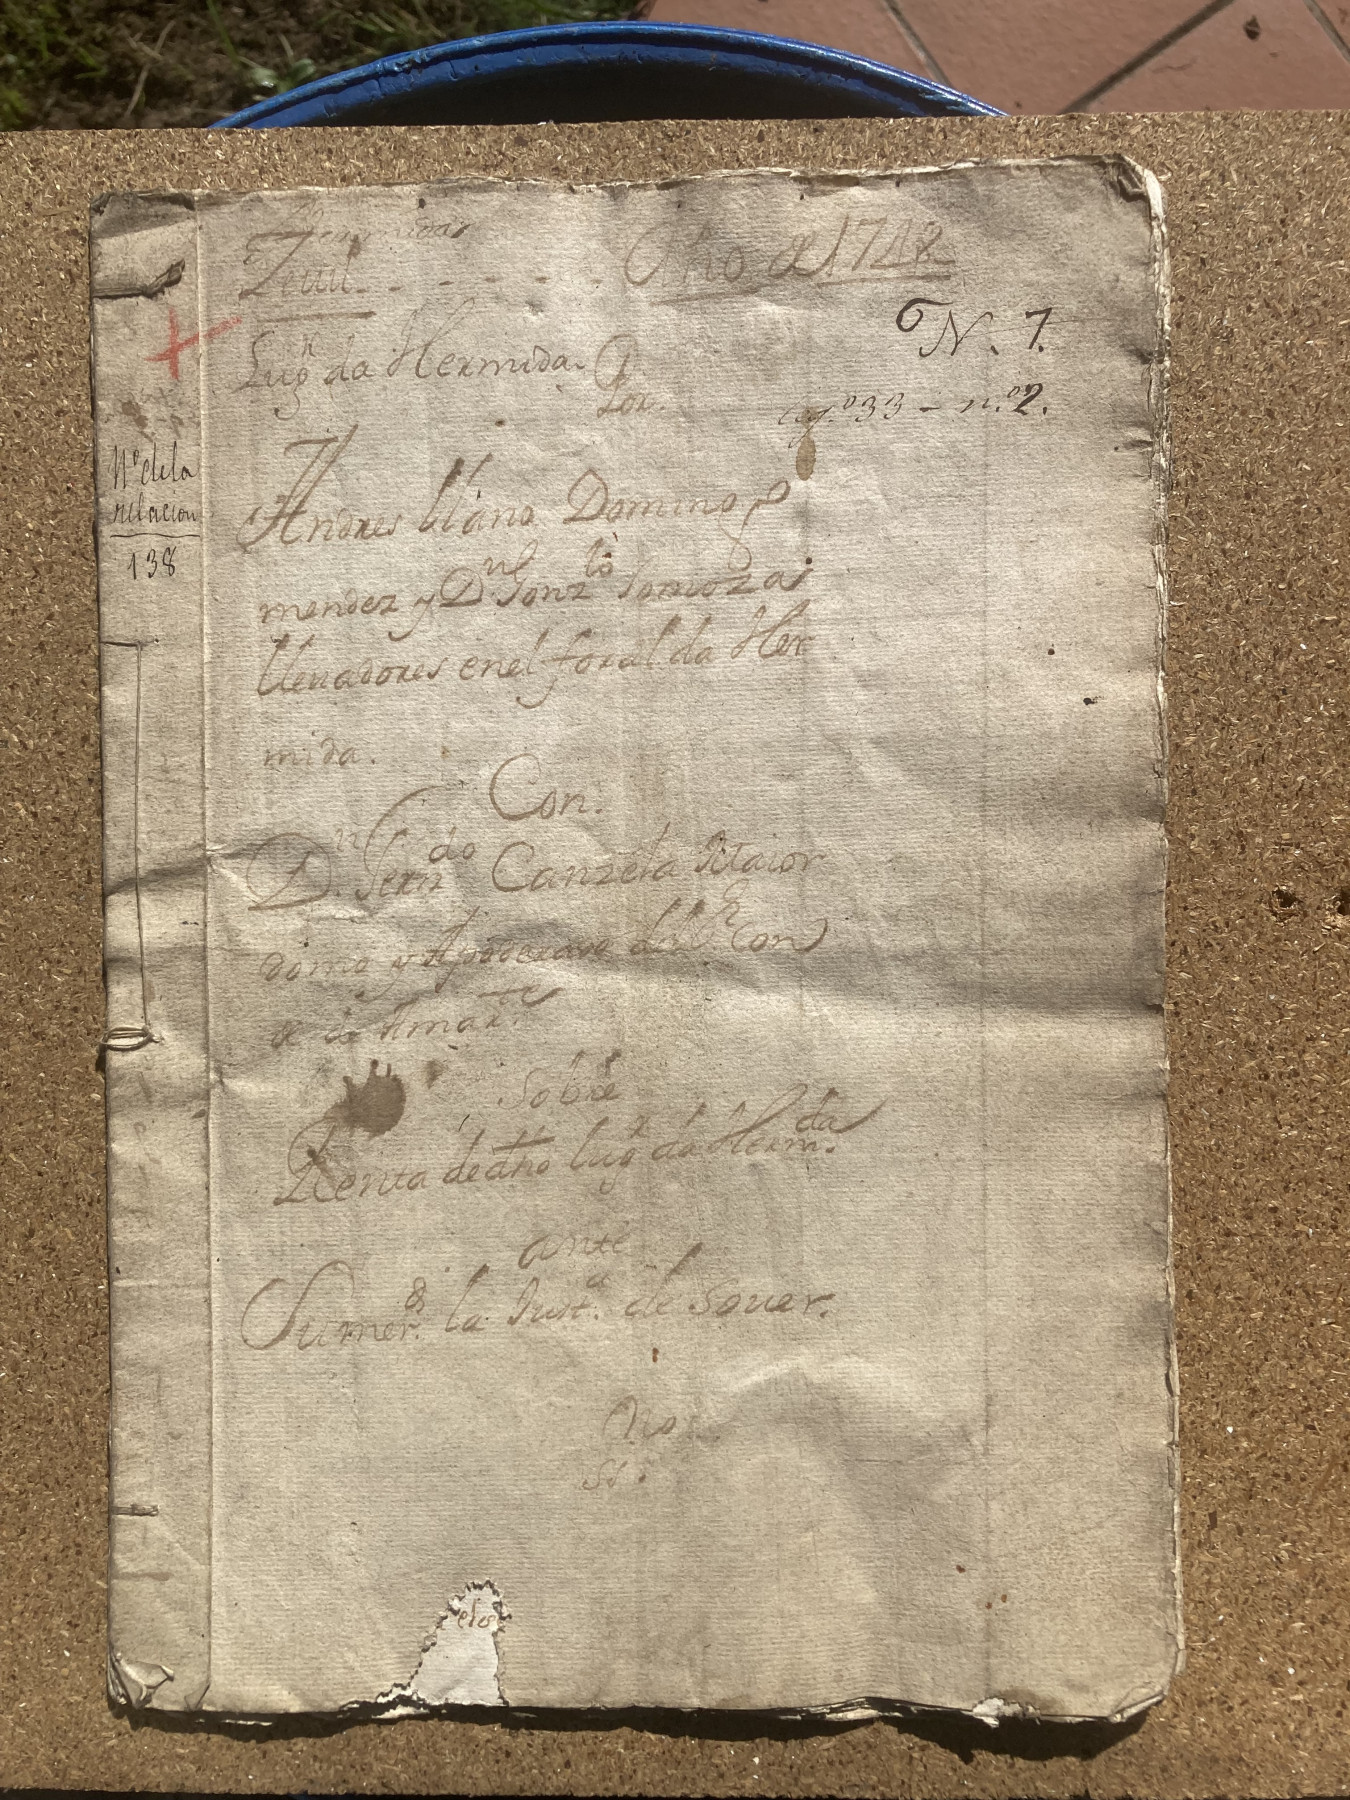 Zivil - - - - - - Año de 1748
N. 7.
Lugr da Hermida.
Por.
leg.o 33 - n.o 2.
Nº de la
relacion
138
Andres llano Domingo
mendez y Dn Gonzlo Somoza
llevadores en el foral da Her
mida.
Con.
Dn. Ferndo Canzela Maior
domo y Apoderado del Sr Con
de de Amarte
Sobre
Renta de dho lugr da Hermda.
ante
Sumerd. la Justa. de Sover.
No
ss.